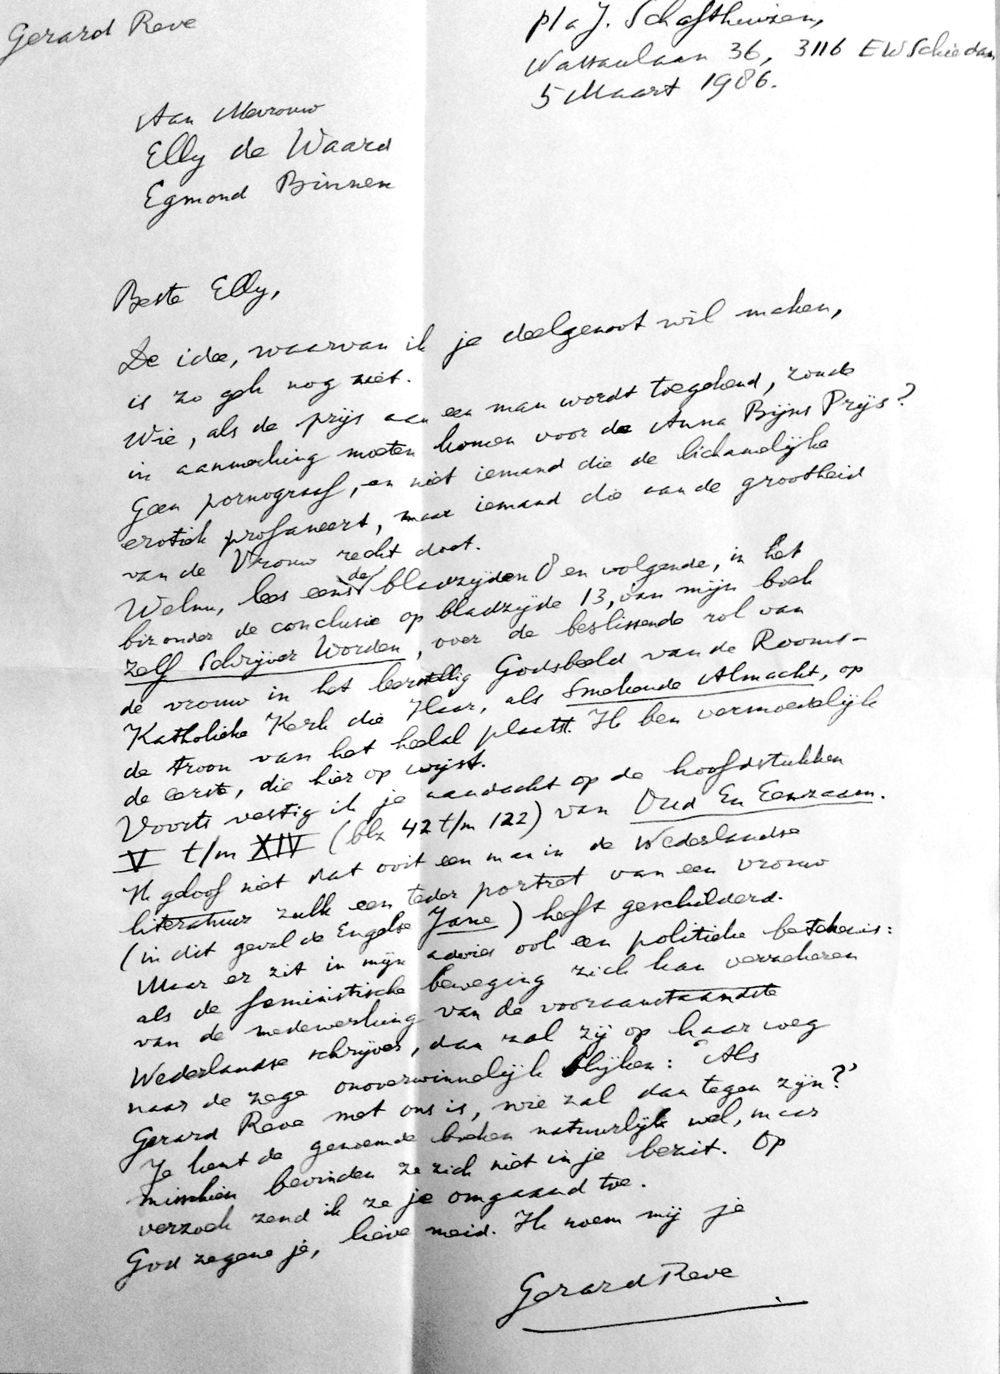 Gerard Reve
p/a J. Schafthuizen,
Wattaulaan 36, 3116 EW Schiedam
5 Maart 1986.
Aan Mevrouw
Elly de Waard
Egmond Binnen
Beste Elly,
De idee, waarvan ik je deelgenoot wil maken,
is zo gek nog niet.
Wie, als de prijs aan een man wordt toegekend, zoude
in aanmerking moeten komen voor de Anna Bijns Prijs?
Geen pornograaf, en niet iemand die de lichamelijke
erotiek profaneert, maar iemand die aan de grootheid
van de Vrouw recht doet.
Welnu, lees eens de bladzijden 8 en volgende, in het
bizonder de conclusie op bladzijde 13, van mijn boek
Zelf Schrijver Worden, over de beslissende rol van
de vrouw in het leerstellig Godsbeeld van de Rooms-
Katholieke Kerk die Haar, als Smekende Almacht, op
de troon van het heelal plaatst. Ik ben vermoedelijk
de eerste, die hier op wijst.
Voorts vestig ik je aandacht op de hoofdstukken
V t/m XIV (blz 42 t/m 122) van Oud En Eenzaam.
Ik geloof niet dat ooit een man in de Nederlandse
literatuur zulk een teder portret van een vrouw
(in dit geval de Engelse Jane) heeft geschilderd.
Maar er zit in mijn advies ook een politieke betekenis:
als de feministische beweging zich kan verzekeren
van de medewerking van de vooraanstaandste
Nederlandse schrijver, dan zal zij op haar weg
naar de zege onoverwinnelijk blijken: "Als
Gerard Reve met ons is, wie zal dan tegen zijn?"
Je kent de genoemde boeken natuurlijk wel, maar
misschien bevinden ze zich niet in je bezit. Op
verzoek zend ik ze je omgaand toe.
God zegene je, lieve meid. Ik noem mij je
Gerard Reve